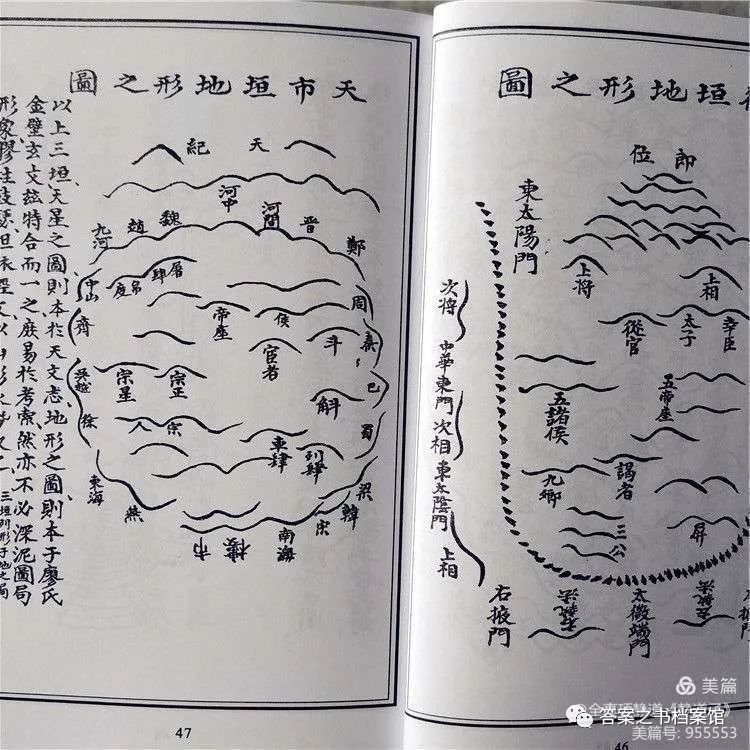 垣地形之圖
郎位
東太陽門
上将
上相
次将
從官
太子
幸臣
中華東門
五諸侯
五帝座
次相
東太陰門
九卿
謁者
三公
屏
上相
右掖門
太微端門
46
天市垣地形之圖
天紀
河中
河間
九河
趙
魏
晋
鄭
中山
帛度
屠肆
周
齊
帝座
侯
斗
秦
宦者
吳越
宗星
宗正
斛
巴
徐
宗人
車肆
列肆
蜀
東海
燕
市樓
南海
宋
韓
梁
以上三垣天星之圖則本於天文志地形之圖則本于廖氏
金壁玄文玆特合而一之庶易於考索然亦不必深泥圖局
47
美篇
答案之书档案馆
美篇号: 955553